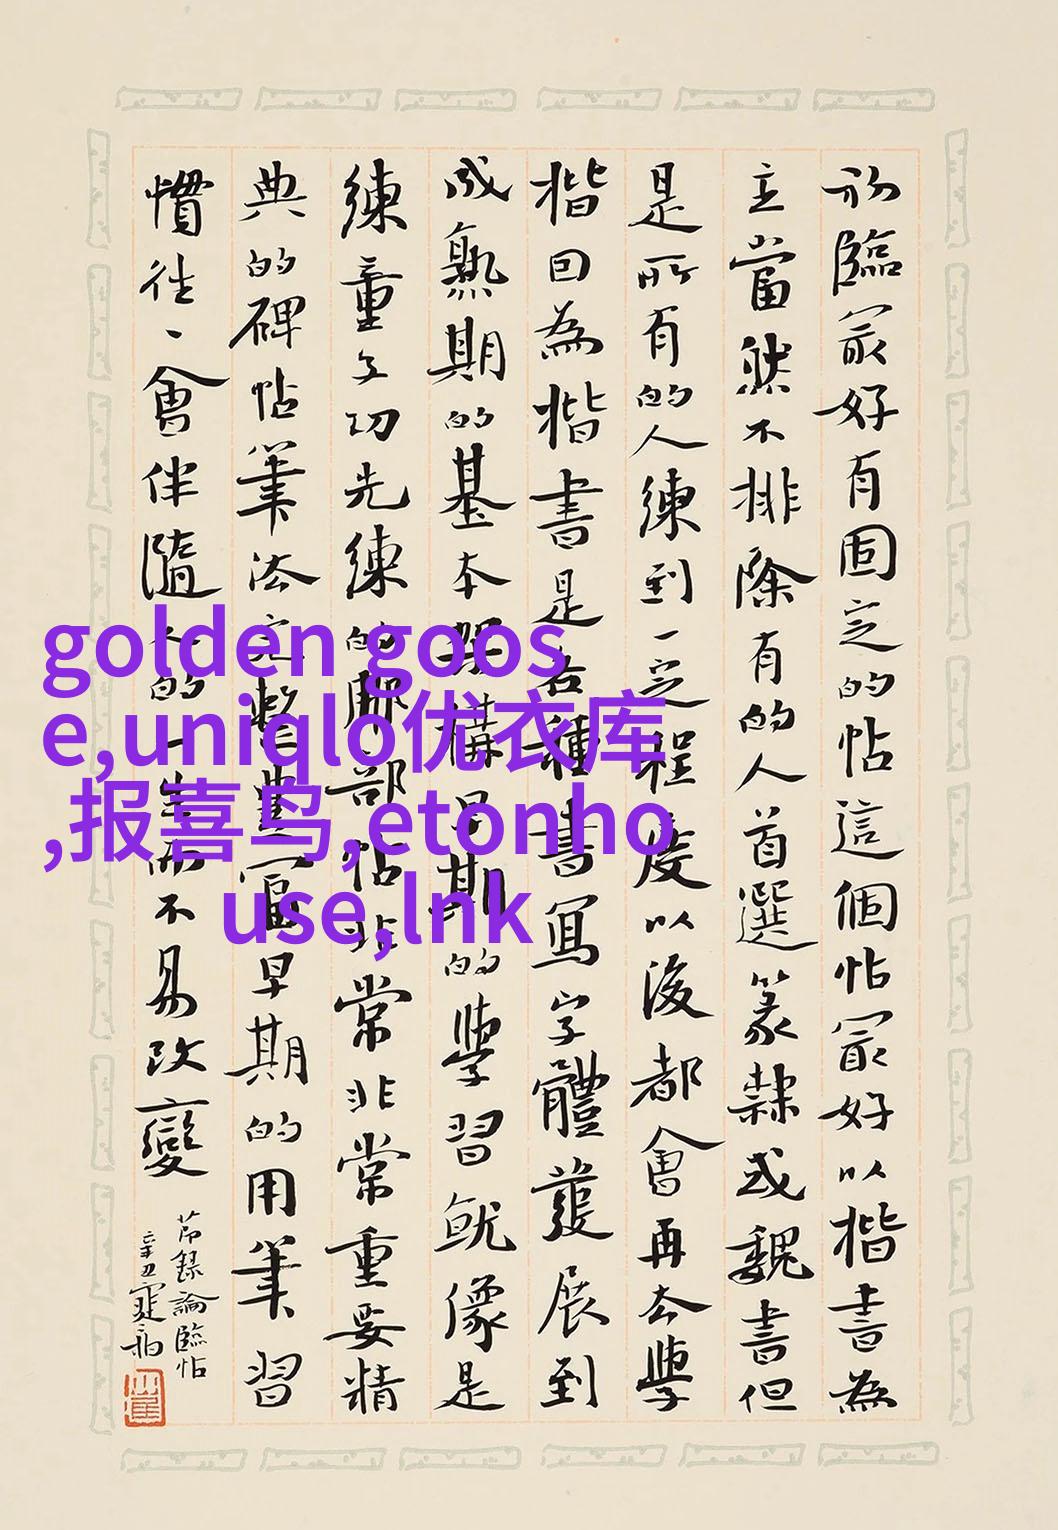 初臨冣好有固定的帖這個帖冣好以楷書為
主當然不排除有的人首選篆隸或魏書但
是所有的人練到一定程度以後都會再去學
楷因為楷書是各種書寫字體發展到
成熟期的基本架構早期的學習就像是
練童子功先練的那部帖非常非常重要精
典的碑帖筆法完整豐富早期的用筆習
慣往往會伴隨人的一生而不易改變
節錄論臨帖
辛丑
golden goos
e,uniqlo优衣库
,报喜鸟,etonho
use,lnk